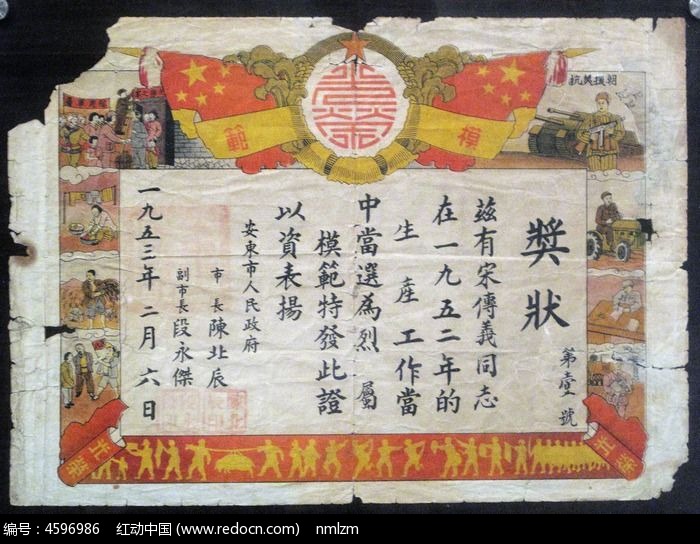 模範
抗美援朝
獎狀
第壹號
茲有宋傳義同志
在一九五二年的
生產工作當
中當選為烈屬
模範特發此證
以資表揚
安東市人民政府
市長陳北辰
副市長段永傑
一九五三年二月六日
编号：4596986 红动中国 (www.redocn.com) nmlzm